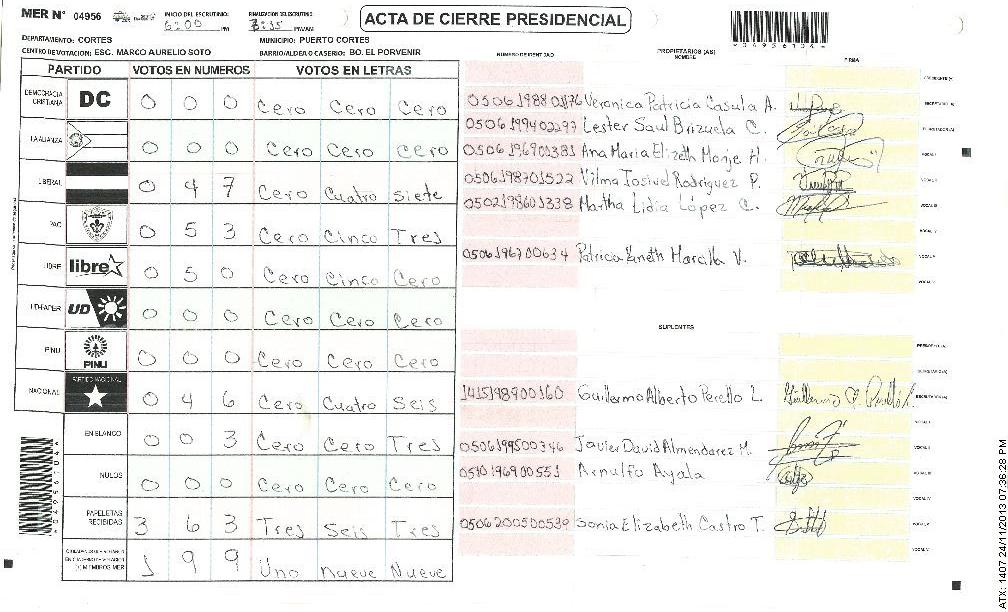 MER N° 04956 INICIO DEL ESCRUTINIO: 6:00 PM FINALIZACION DEL ESCRUTINIO PM/AM
ACTA DE CIERRE PRESIDENCIAL
*04956104*
DEPARTAMENTO: CORTES MUNICIPIO: PUERTO CORTES
CENTRO DE VOTACION: ESC. MARCO AURELIO SOTO BARRIO/ALDEA O CASERIO: BO. EL PORVENIR
PARTIDO VOTOS EN NUMEROS VOTOS EN LETRAS
DEMOCRACIA CRISTIANA DC 0 0 0 Cero Cero Cero
LA ALIANZA 0 0 0 Cero Cero Cero
LIBERAL 0 4 7 Cero Cuatro Siete
PAC 0 5 3 Cero Cinco Tres
LIBRE libre 0 5 0 Cero Cinco Cero
UD-FAPER UD 0 0 0 Cero Cero Cero
PINU PINU 0 0 0 Cero Cero Cero
NACIONAL PARTIDO NACIONAL 0 4 6 Cero Cuatro Seis
EN BLANCO 0 0 3 Cero Cero Tres
NULOS 0 0 0 Cero Cero Cero
PAPELETAS RECIBIDAS 3 6 3 Tres Seis Tres
1 9 9 Uno Nueve Nueve
NUMERO DE IDENTIDAD PROPIETARIOS (AS) NOMBRE FIRMA
PRESIDENTE (A)
0506198801176 Veronica Patricia Casula A. SECRETARIO (A)
0506199402297 Lester Saul Brizuela C. ESCRUTADOR (A)
0506196901381 Ana Maria Elizeth Monje H. VOCAL I
0506198701522 Vilma Josivel Rodriguez P. VOCAL II
0502198601338 Martha Lidia López C. VOCAL III
VOCAL IV
0506196700634 Patricia Maralla V. VOCAL V
VOCAL VI
SUPLENTES
PRESIDENTE (A)
SECRETARIO (A)
1415198900160 Guillermo Alberto Perello L. ESCRUTADOR (A)
VOCAL I
0506199500346 Javier David Almendarez M. VOCAL II
0510196900551 Arnulfo Ayala VOCAL III
VOCAL IV
0506200500539 Sonia Elizabeth Castro T. VOCAL V
VOCAL VI
*04956104*
ATX: 1407 24/11/2013 07:36:28 PM